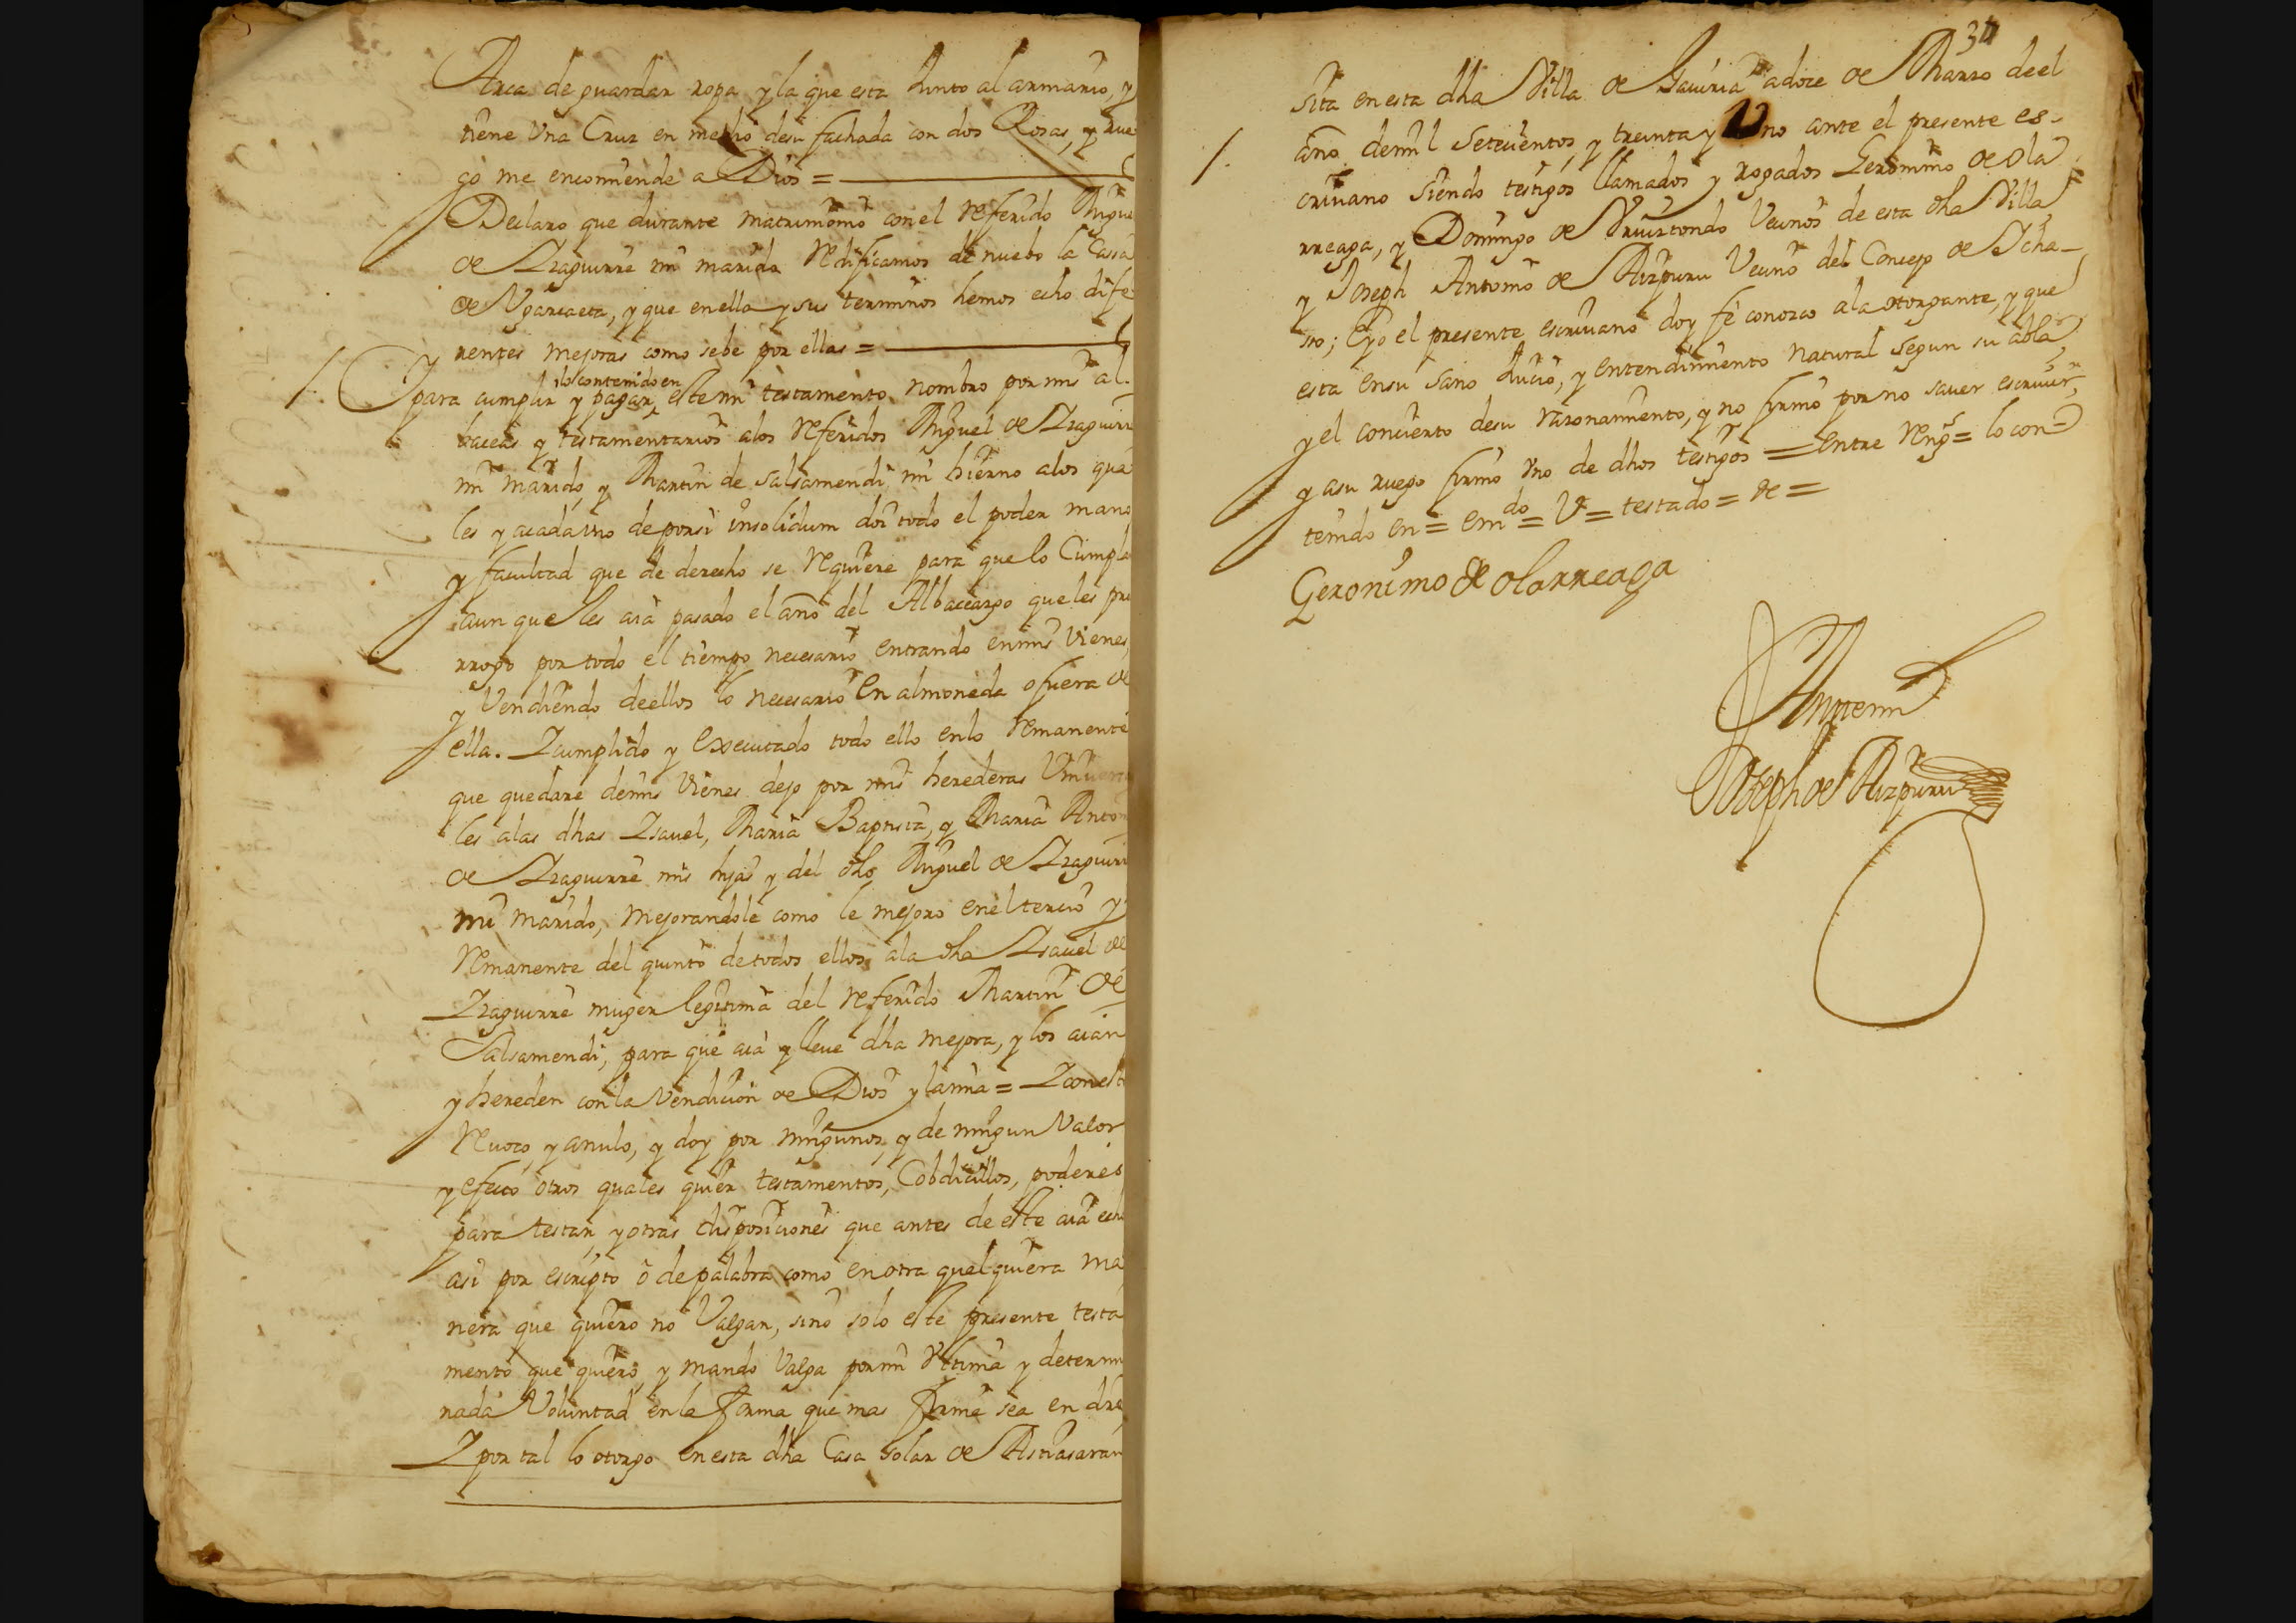 Arca de guardar ropa y la que esta Junto al armario, y
tiene Una Cruz en medio desu fachada con dos Rosas, y rue
go me encomiende a Dios =
Declaro que durante matrimonio con el referido Migue
de Izaguirre mi marido redificamos de nuebo la Cassa
de Ugarcaeta, y que en ella y sus terminos hemos echo dife
rentes mejoras como sebe por ellas =
lo contenido en
Ipara cumplir y pagar este mi testamento nombro por mis al-
baceas y testamentarios alos referidos Miguel de Izaguirr
mi marido, y Martin de Salsamendi mi hierno alos qua
les y acada uno de porsi insolidum doi todo el poder mano
y facultad que de derecho se requiere para que lo Cumpla
aun que les aia pasado el año del Albaceazgo que les pro
rrogo por todo el tiempo necesario entrando en mis Vienes,
y Vendiendo deellos lo necesario en almoneda o fuera de
ella. I cumplido y executado todo ello enlo remanente
que quedare demis Vienes dejo por mis herederas Uniuersa
les alas dhas Isauel, Maria Baptista, y Maria Anton
de Izaguirre mis hijas y del dho Miguel de Izaguirr
mi marido, mejorandole como le mejoro enel tercio y
remanente del quinto de todos ellos ala dha Isauel de
Izaguirre muger legitima del referido Martin de
Salsamendi, para que aia y lleue dha mejora, y los aian
y hereden con la Vendicion de Dios y la mia = I con esto
reuoco, y anulo, y doy por ningunos, y de ningun Valor
y efecto otros quales quier testamentos, Cobdicillos, poderes
para testar, y otras disposiciones que antes de este aia echo
asi por escripto o de palabra como en otra qualquiera ma
nera que quiero no Valgan, sino solo este presente testa
mento que quiero, y mando Valga por mi Vltima y determi
nada Voluntad en la forma que mas firme sea en dro
I por tal lo otorgo en esta dha Casa solar de Astiasaran
34
sita en esta dha Villa de Gauiria a doce de Marzo de el
año demil Setecientos, y treinta y Uno ante el presente es-
criuano siendo testigos llamados y rogados Geronimo de Ola
rreaga, y Domingo de Vruiztondo Vecinos de esta dha Villa
y Joseph Antonio de Aizpuru Vecino del Concejo de Icha-
so; E yo el presente escriuano doy fe conozco ala otorgante, y que
esta en su sano Juicio, y entendimiento natural segun su abla,
y el concierto desu razonamiento, y no firmo por no sauer escriuir,
y asu ruego firmo Vno de dhos testigos = entre reng.s = lo con=
tenido en = em.do = V = testado = de =
Geronimo de olarreaga
Ante mi
Joseph de Aizpuru